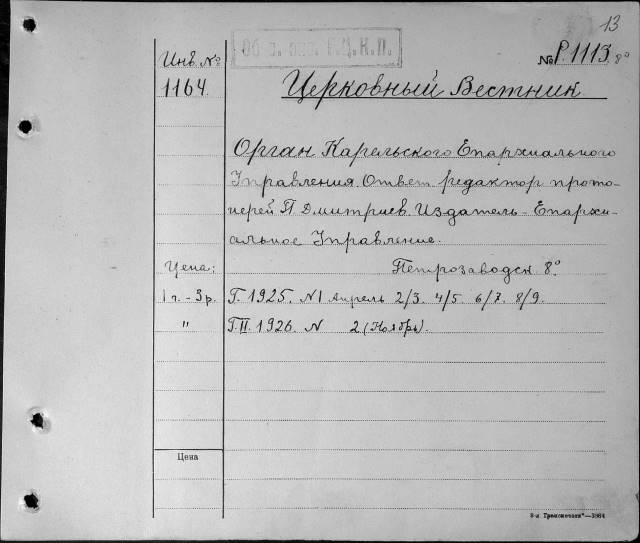 13
Инв. №
№ Р.1113. 8°
1164.
Церковный Вестник
Орган Карельского Епархиального
Управления. Ответ. редактор прото-
иерей П. Дмитриев. Издатель - Епархи-
альное Управление.
Цена:
Петрозаводск 8°
1 г. - 3 р.
Г. 1925. N 1 Апрель 2/3. 4/5. 6/7. 8/9.
"
Г. II. 1926. N 2 (Ноябрь).
Цена